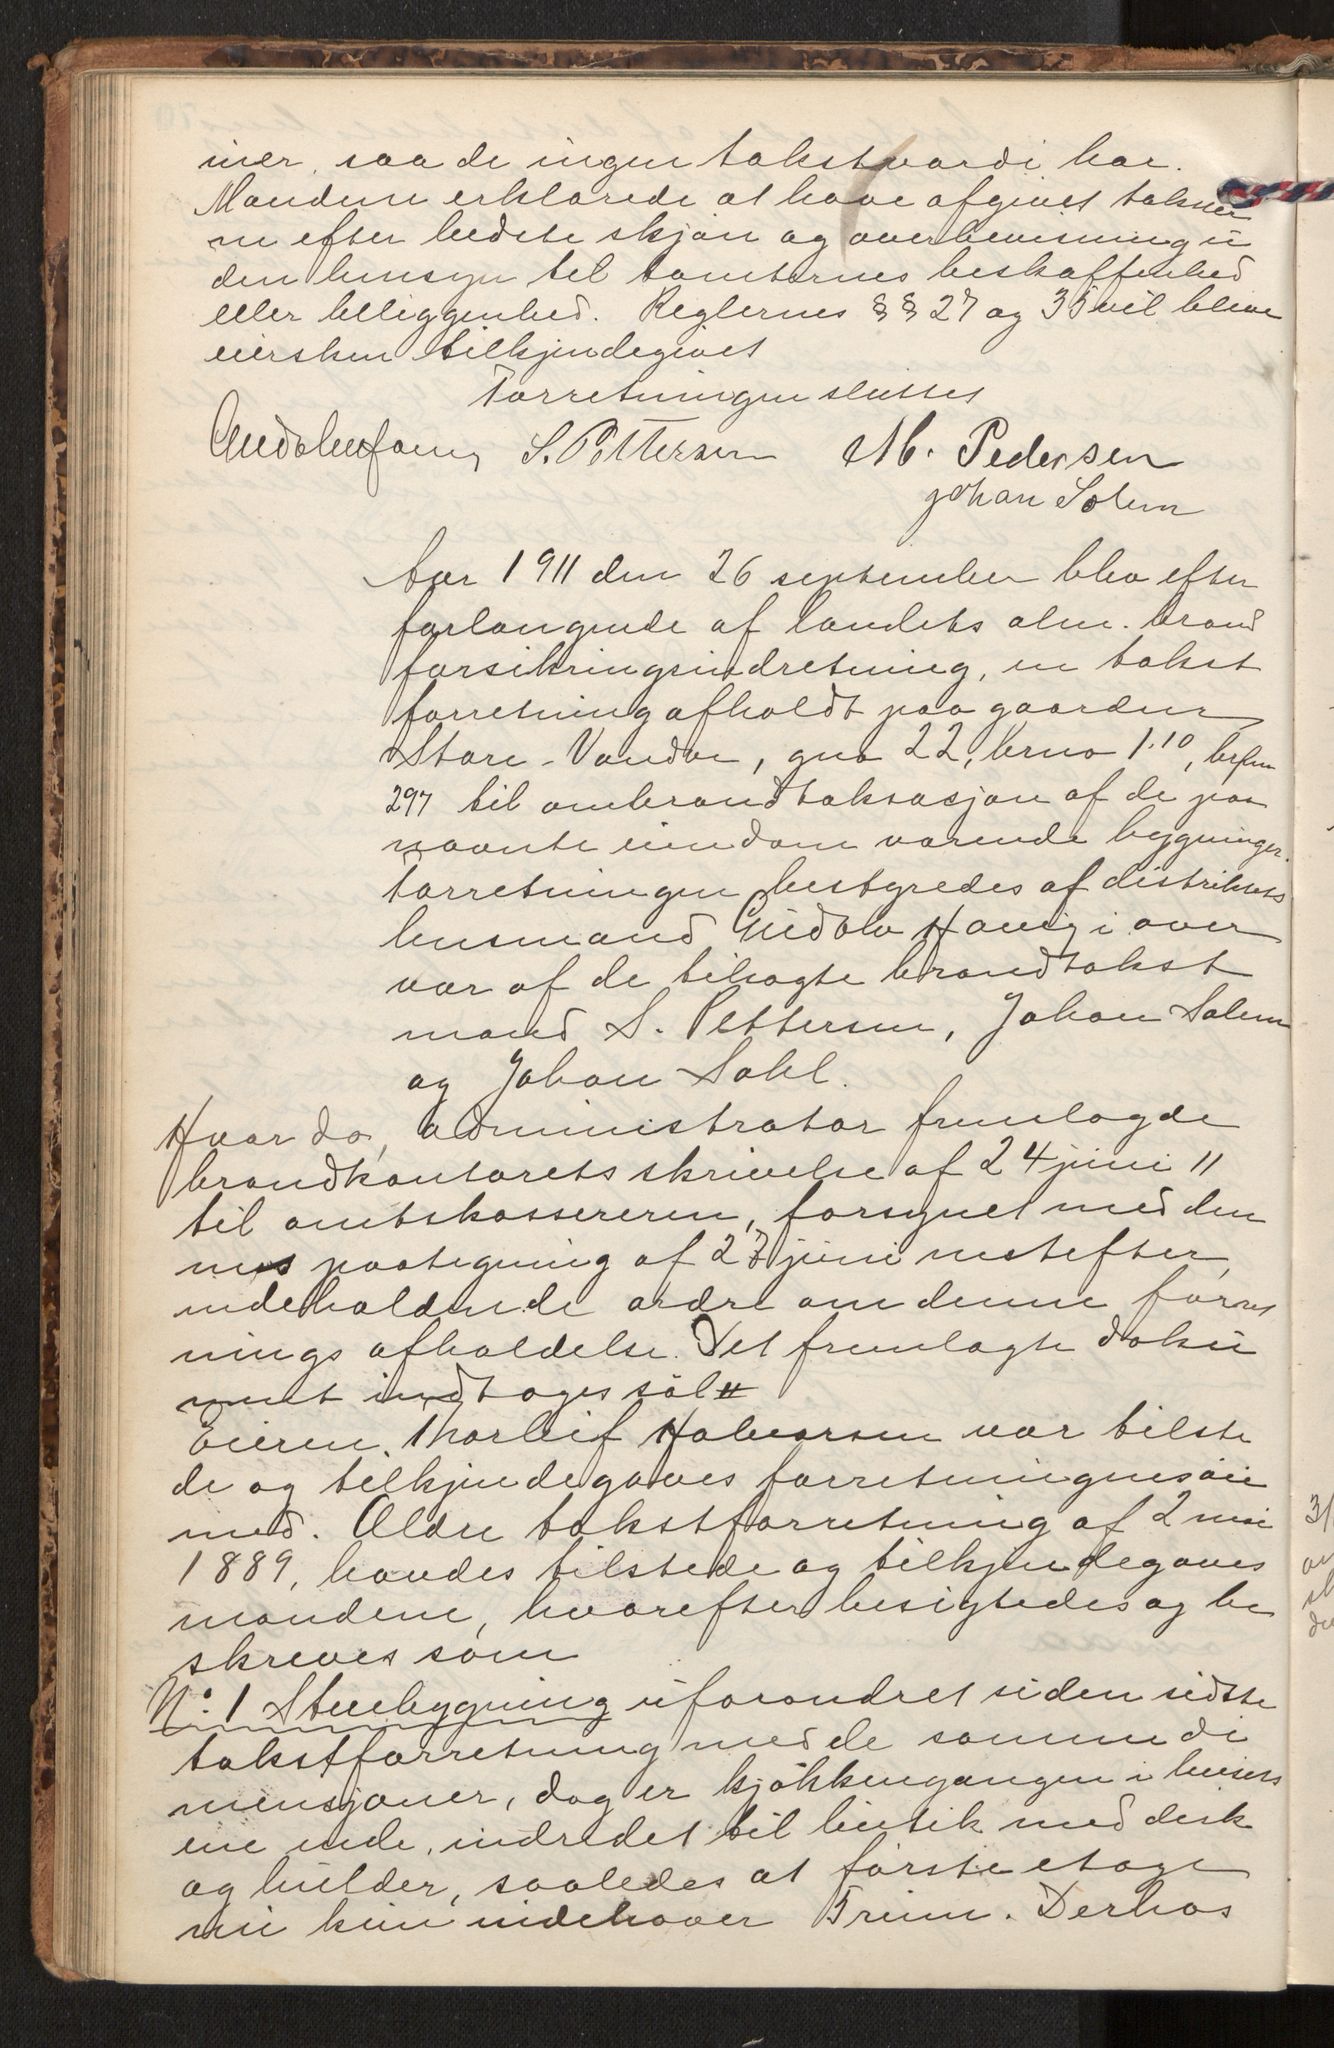 iner, saa de ingen takstværdi har.
Mændene erklærede at have afgivet takster
ne efter bedste skjøn og overbevisning u
den hensyn til tomternes beskaffenhed
eller beliggenhed. Reglernes §§ 27 og 35 vil blive
eiersken tilkjendegivet
Forretningen sluttet
S. Pettersen M. Pedersen
Johan Solem
Aar 1911 den 26 september blev efter
forlangende af landets alm. brand
forsikringsindretning, en takst
forretning afholdt paa gaarden
Store-Vandve, gno 22, brno 1.10, brfno
297 til ombrandtaksasjon af de paa
nævnte eiendom værende bygninger.
Forretningen bestyredes af distriktets
lensmand Gudolv Haveg i over
vær af de tilsagte brandtakst
mænd S. Pettersen, Johan Solem
og Johan Dahl.
Hvor da, administrator fremlagde
brandkontorets skrivelse af 24 juni 11
til amtskassereren, forsynet med den
nes paategning af 27 juni nestefter,
indeholdende ordre om denne forret
nings afholdelse. Det fremlagte doku
ment indtages sål#
Eieren Thorleif Halvorsen var tilste
de og tilkjendegaves forretningens øie
med. Ældre takstforretning af 2 mai
1889, havdes tilstede og tilkjendegaves
mændene, hvorefter besigtedes og be
skreves som
No. 1 Stuebygning uforandret siden sidste
takstforretning med de samme di
mensjoner, dog er kjøkkengangen i husets
ene ende, indredet til butik med disk
og hulder, saaledes at første etage
nu kun indehaver 5 rum. Derhos